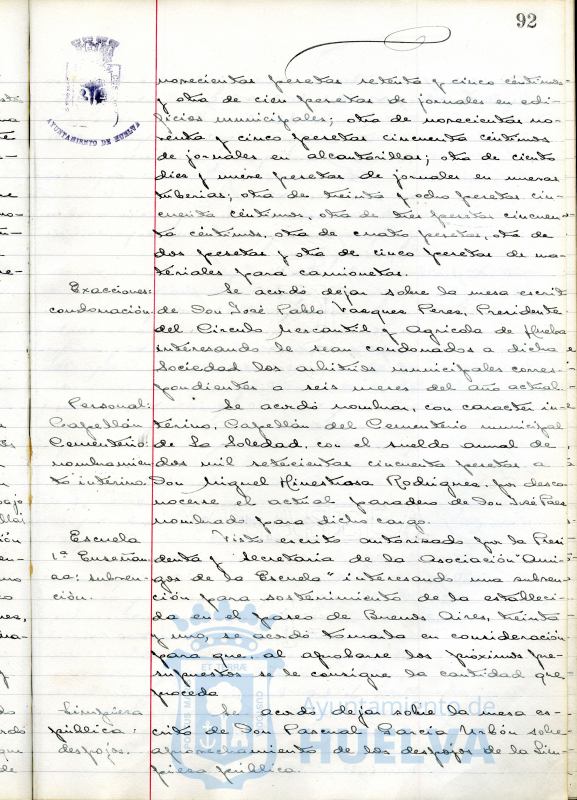 92
AYUNTAMIENTO DE HUELVA
novecientas pesetas setenta y cinco céntimos
y otra de cien pesetas de jornales en edi-
ficios municipales; otra de novecientas no-
venta y cinco pesetas cincuenta céntimos
de jornales en alcantarillas; otra de ciento
diez y nueve pesetas de jornales en nuevas
tuberias; otra de treinta y ocho pesetas cin-
cuenta céntimos, otra de tres pesetas cincuen-
ta céntimos, otra de cuatro pesetas, otra de
dos pesetas y otra de cinco pesetas de ma-
teriales para camionetas.
Exacciones: Se acordó dejar sobre la mesa escrito
condonación de Don José Pablo Vazquez Perez, Presidente
del Circulo Mercantil y Agricola de Huelva
interesando le sean condonados a dicha
Sociedad los arbitrios municipales corres-
pondientes a seis meses del año actual.
Personal: Se acordó nombrar, con caracter in-
Capellán terino, Capellán del Cementerio municipal
Cementerio: de La Soledad, con el sueldo anual de
nombramien- dos mil setecientas cincuenta pesetas a
to interino. Don Miguel Hinestrosa Rodriguez, por desco-
nocerse el actual paradero de Don José Paez
nombrado para dicho cargo.
Escuela Visto escrito autorizado por la Presi-
1ª Enseñan- denta y Secretaria de la Asociación "Ami-
za: subven- gos de la Escuela" interesando una subven-
ción. ción para sostenimiento de la estableci-
da en el paseo de Buenos Aires, treinta
y uno, se acordó tomada en consideración
para que, al aprobarse los próximos pre-
supuestos se le consigne la cantidad que
proceda
Limpieza Se acordó dejar sobre la mesa es-
pública: crito de Don Pascual Garcia sobre
despojos. aprovechamiento de los despojos de la lim-
pieza pública.
Ayuntamiento de
HUELVA